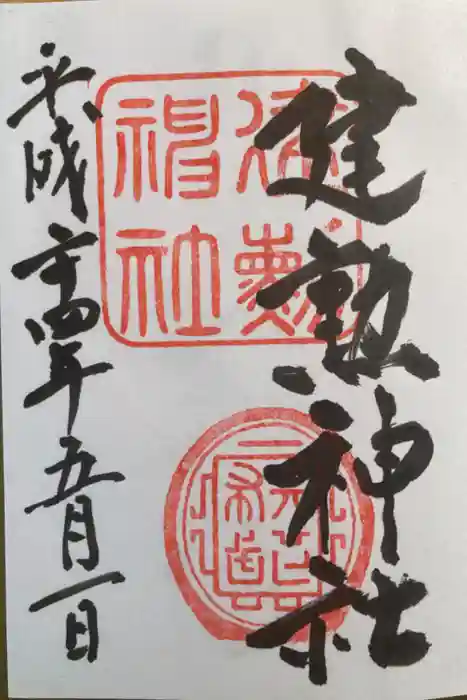 建勲神社
建勲
神社
平成二十四年五月一日